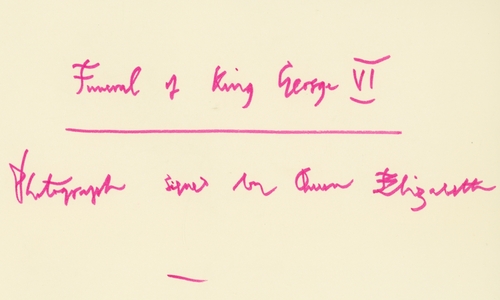 Funeral of King George VI
Photograph signed by Queen Elizabeth